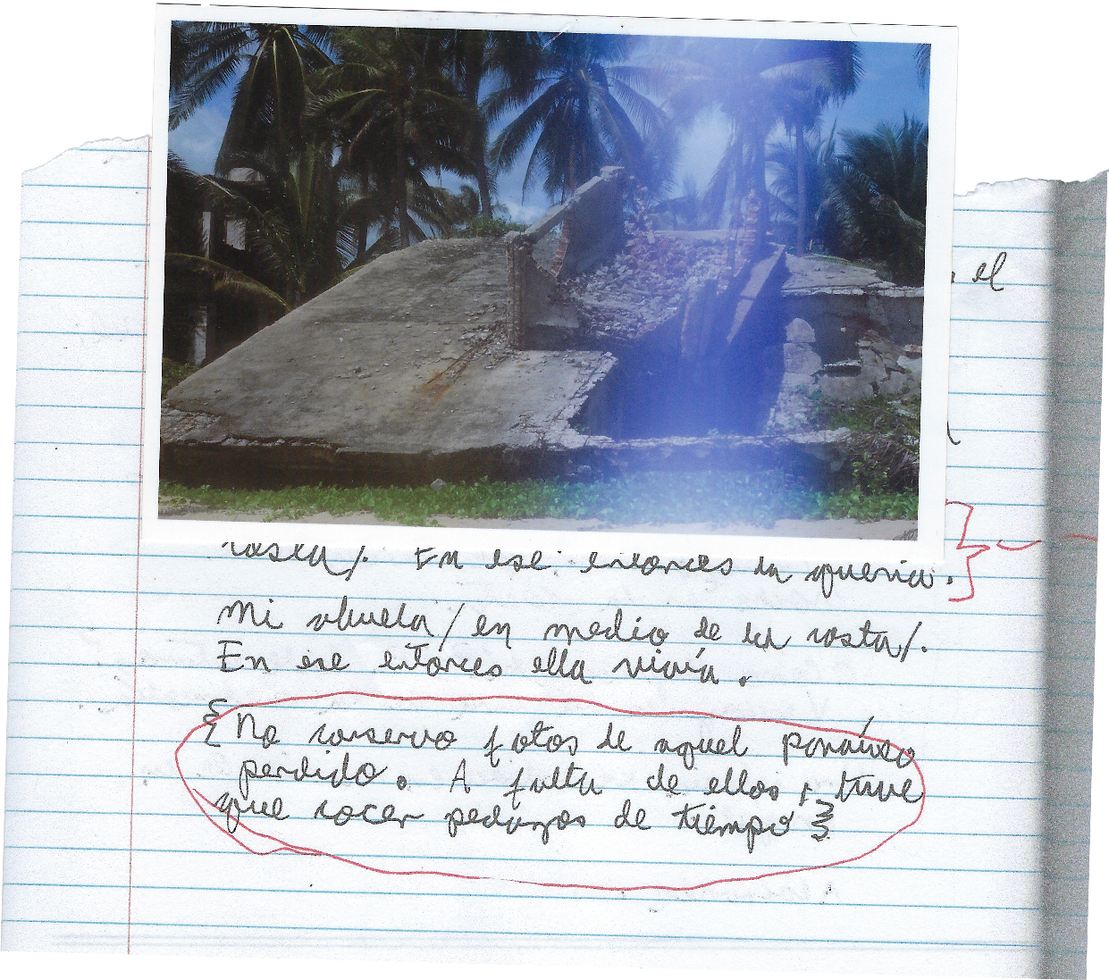 el
costa/. En ese entonces la quería.
Mi abuela/en medio de la costa/.
En ese entonces ella vivía.
{No conservo fotos de aquel paraíso
perdido. A falta de ellas, tuve
que cocer pedazos de tiempo}